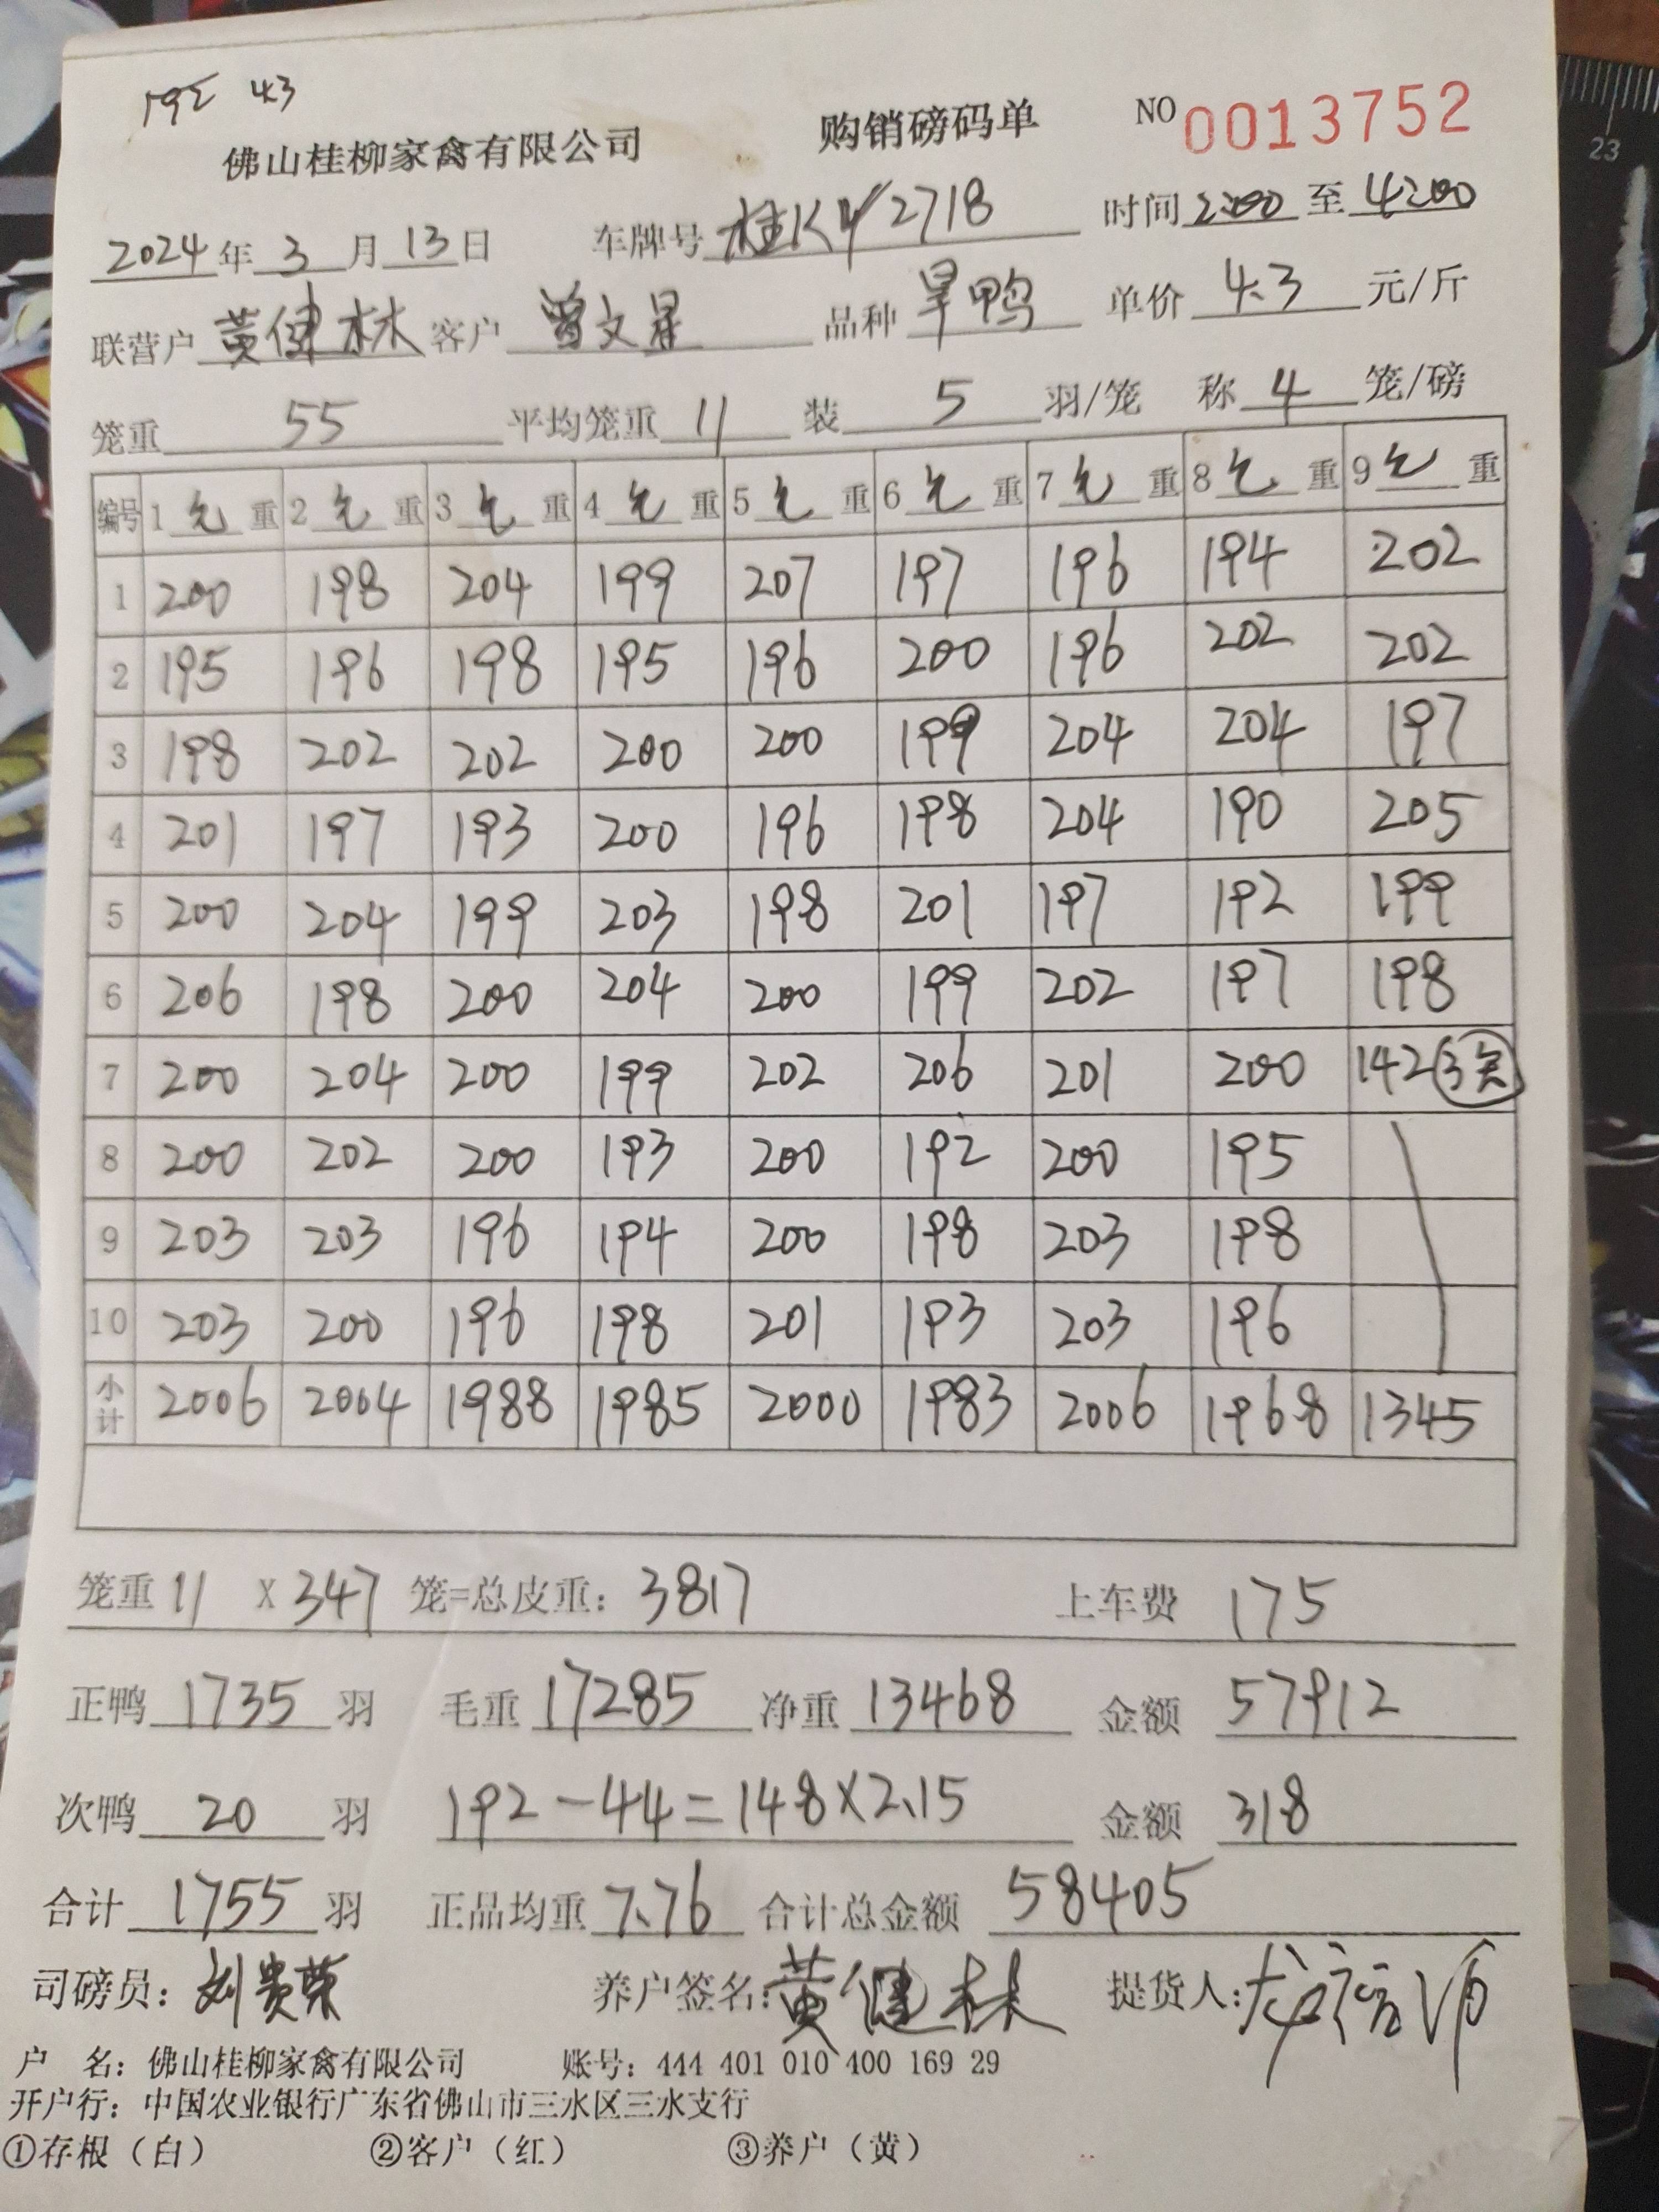 4.3
佛山桂柳家禽有限公司 购销磅码单 NO 0013752
2024年3月13日 车牌号 桂K 2718 时间 2:00 至 4:00
联营户 黄健林 客户 曾文星 品种 旱鸭 单价 4.3 元/斤
笼重 55 平均笼重 11 装 5 羽/笼 称 4 笼/磅
编号 1 毛重 2 毛重 3 毛重 4 毛重 5 毛重 6 毛重 7 毛重 8 毛重 9 毛重
1 200 198 204 199 207 197 196 194 202
2 195 196 198 195 196 200 196 202 202
3 198 202 202 200 200 199 204 204 197
4 201 197 193 200 196 198 204 190 205
5 200 204 199 203 198 201 197 192 199
6 206 198 200 204 200 199 202 197 198
7 200 204 200 199 202 206 201 200 142 3
8 200 202 200 193 200 192 200 195
9 203 203 196 194 200 198 203 198
10 203 200 196 198 201 193 203 196
小计 2006 2004 1988 1985 2000 1983 2006 1968 1345
笼重 11 X 347 笼=总皮重: 3817 上车费 175
正鸭 1735 羽 毛重 17285 净重 13468 金额 57912
次鸭 20 羽 192-44=148×2.15 金额 318
合计 1755 羽 正品均重 7.76 合计总金额 58405
司磅员: 刘贵荣 养户签名: 黄健林 提货人:
户 名: 佛山桂柳家禽有限公司 账号: 444 401 010 400 169 29
开户行: 中国农业银行广东省佛山市三水区三水支行
①存根（白） ②客户（红） ③养户（黄）
23